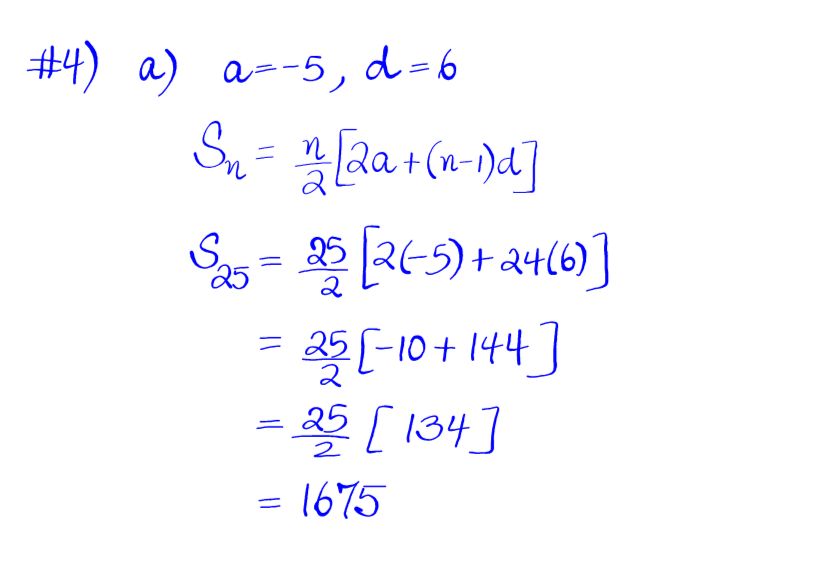 #4) a) a=-5, d=6
Sₙ = n/2 [2a+(n-1)d]
S₂₅ = 25/2 [2(-5)+24(6)]
= 25/2 [-10+144]
= 25/2 [134]
= 1675